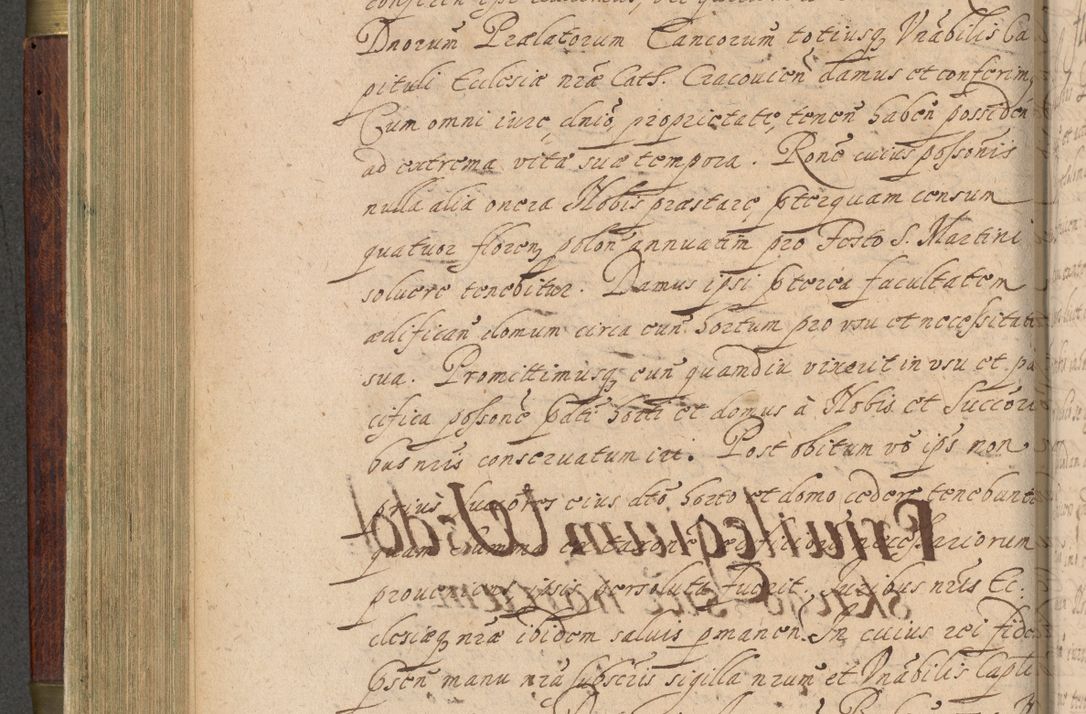 Dnorum Prælatorum Cancorum totiusq Vnabilis Ca
pituli Ecclesiæ nræ Cath. Cracouien damus et conferim
Cum omni iure, dnio, proprietate, tenen haben possiden
ad extrema vitæ suæ tempora. Rone cuius possonis
nulla alia onera Nobis præstare, pterquam censum
quatuor floren polon annuatim pro Festo S. Martini
soluere tenebitur. Damus ipsi pterea facultatem
ædifican domum circa eun hortum pro vsu et necessitate
sua. Promittimusq eun quandiu vixerit in vsu et pa
cifica possone pati horti et domus à Nobis et Succori
bus nris conseruatum iri. Post obitum vo ips non
prius Succores eius dto horto et domo cedere tenebunt
quam summa necessariorum
ipsis persoluta fuerit. Juribus nris Ec
clesiæq nræ ibidem saluis pmanen. In cuius rei fidem
psen manu nra subscris sigilla nrum et Vnabilis Capli
Priuilegium Vsdo